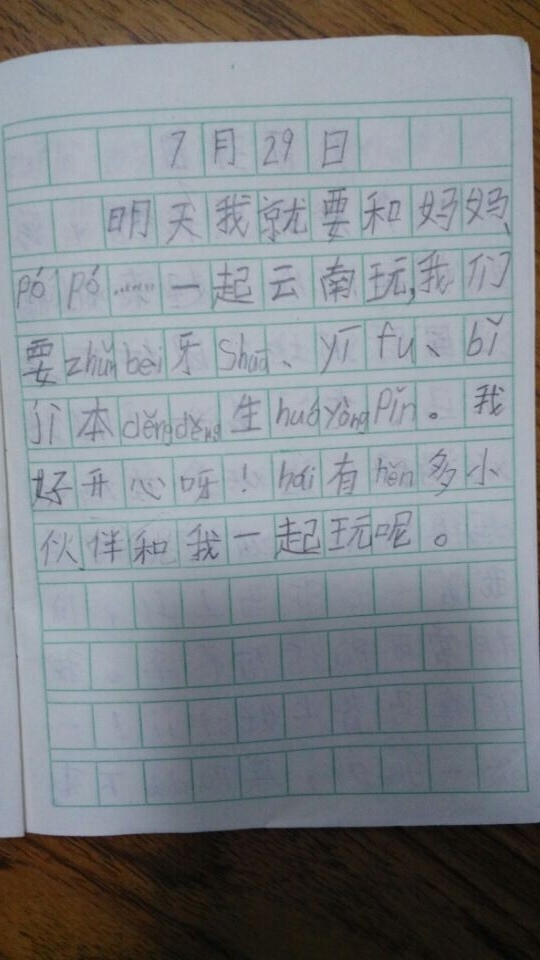 7月29日
明天我就要和妈妈、
pó pó……一起云南玩,我们
要zhǔn bèi牙Shuā、yī fu、bǐ
jì本děng děng生huó yòng Pǐn。我
好开心呀!hái有hěn多小
伙伴和我一起玩呢。